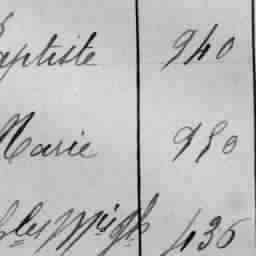 aptiste 940
Marie 950
436